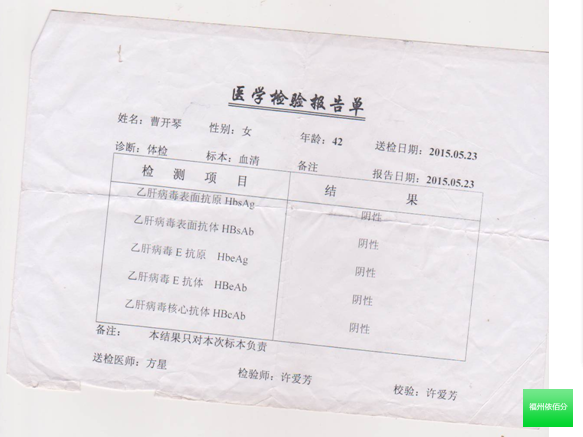 医学检验报告单
姓名：曹开琴 性别：女 年龄：42 送检日期：2015.05.23
诊断：体检 标本：血清 备注 报告日期：2015.05.23
检 测 项 目 结 果
乙肝病毒表面抗原 HbsAg 阴性
乙肝病毒表面抗体 HBsAb 阴性
乙肝病毒 E 抗原 HbeAg 阴性
乙肝病毒 E 抗体 HBeAb 阴性
乙肝病毒核心抗体 HBcAb 阴性
备注： 本结果只对本次标本负责
送检医师：方星 检验师：许爱芳 校验：许爱芳
福州依佰分